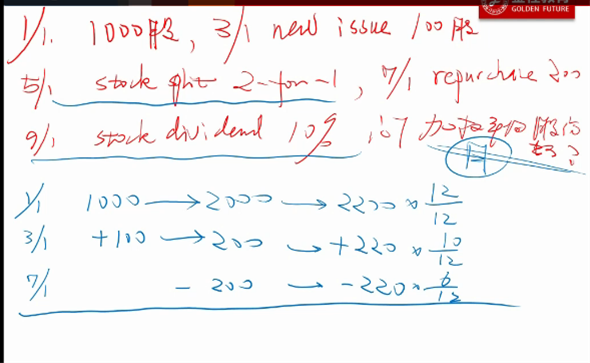 GOLDEN FUTURE
1/1. 1000股, 3/1 new issue 100股
5/1 stock split 2-for-1, 7/1 repurchase 200
9/1 stock dividend 10%, 问加权平均股份
1/1 1000 → 2000 → 2200 × 12/12
3/1 +100 → 200 → +220 × 10/12
7/1 - 200 → -220 × 6/12